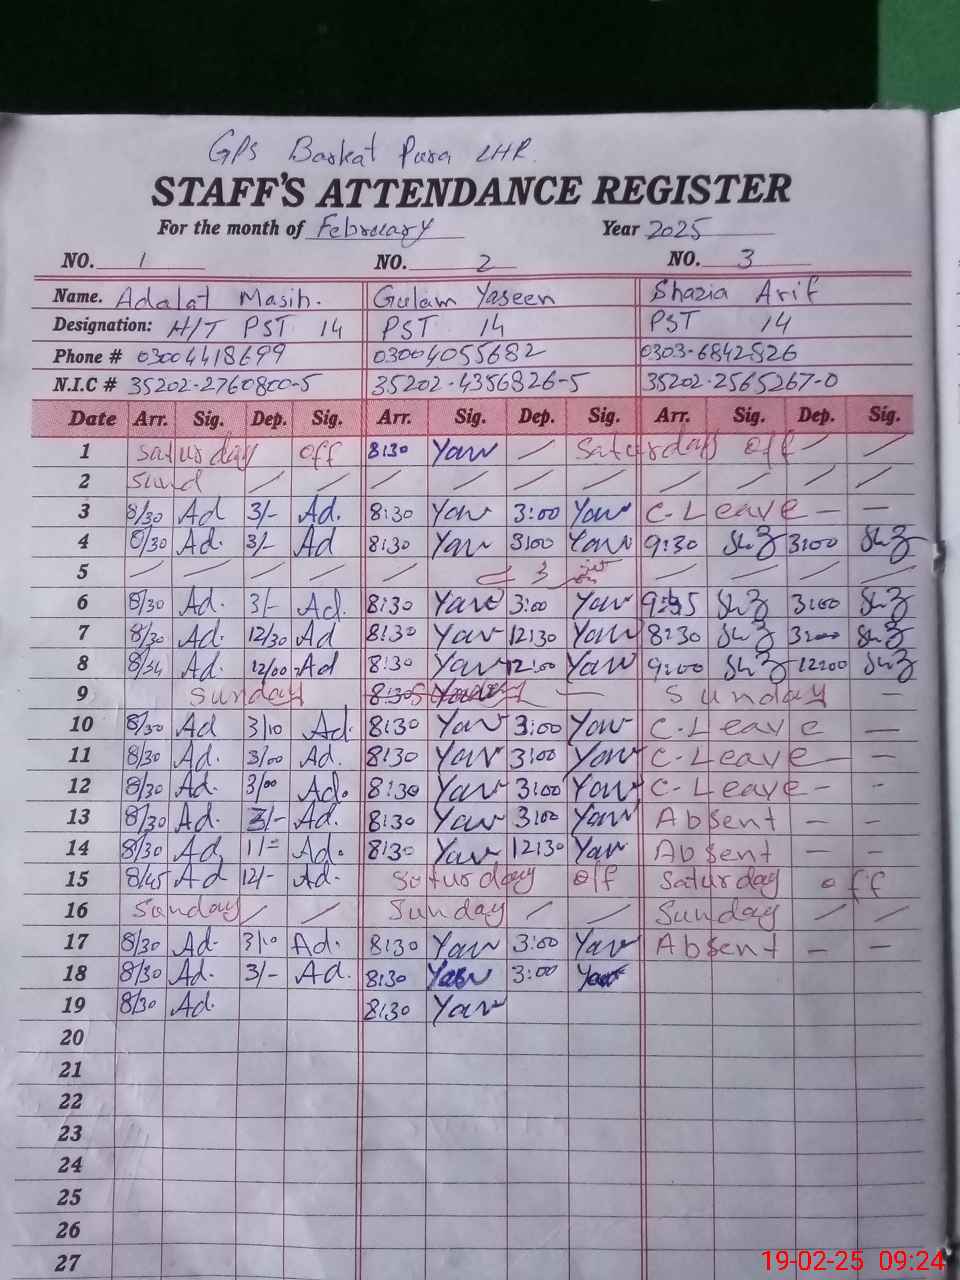 GPS Barkat Pura LHR.
STAFF'S ATTENDANCE REGISTER
For the month of February Year 2025
NO. 1 NO. 2 NO. 3
Name. Adalat Masih. Gulam Yaseen Shazia Arif
Designation: H/T PST 14 PST 14 PST 14
Phone # 03004418699 03004055682 0303-6842826
N.I.C # 35202-2760800-5 35202-4356826-5 35202-2565267-0
Date Arr. Sig. Dep. Sig. Arr. Sig. Dep. Sig. Arr. Sig. Dep. Sig.
1 Saturday off 8:30 Yaw — Saturday off — —
2 Sund — — — — — — — — — —
3 8/30 Ad 3/- Ad. 8:30 Yaw 3:00 Yaw C.Leave — —
4 8/30 Ad. 3/- Ad 8:30 Yaw 3:00 Yaw 9:30 3:00
5 — — — — — — — —
6 8/30 Ad. 3/- Ad. 8:30 Yaw 3:00 Yaw 3:00
7 8/30 Ad. 12/30 Ad 8:30 Yaw 12:30 Yaw 8:30
8 8/34 Ad. 12/00 Ad 8:30 Yaw 12:00 Yaw 9:00 12:00
9 Sunday 8:30 — Sunday —
10 8/30 Ad 3/10 Ad. 8:30 Yaw 3:00 Yaw C.Leave —
11 8/30 Ad. 3/00 Ad. 8:30 Yaw 3:00 Yaw C.Leave — —
12 8/30 Ad. 3/00 Ad. 8:30 Yaw 3:00 Yaw C.Leave — -
13 8/30 Ad. 3/- Ad. 8:30 Yaw 3:00 Yaw Absent — —
14 8/30 Ad. Ad. 8:30 Yaw 12:30 Yaw Absent — —
15 8/45 Ad 12/- Ad. Saturday off Saturday off
16 Sunday — — Sunday — — Sunday — —
17 8/30 Ad. 3/10 Ad. 8:30 Yaw 3:00 Yaw Absent — —
18 8/30 Ad. 3/- Ad. 8:30 Yaw 3:00 Yaw
19 8/30 Ad. 8:30 Yaw
20
21
22
23
24
25
26
27
19-02-25 09:24